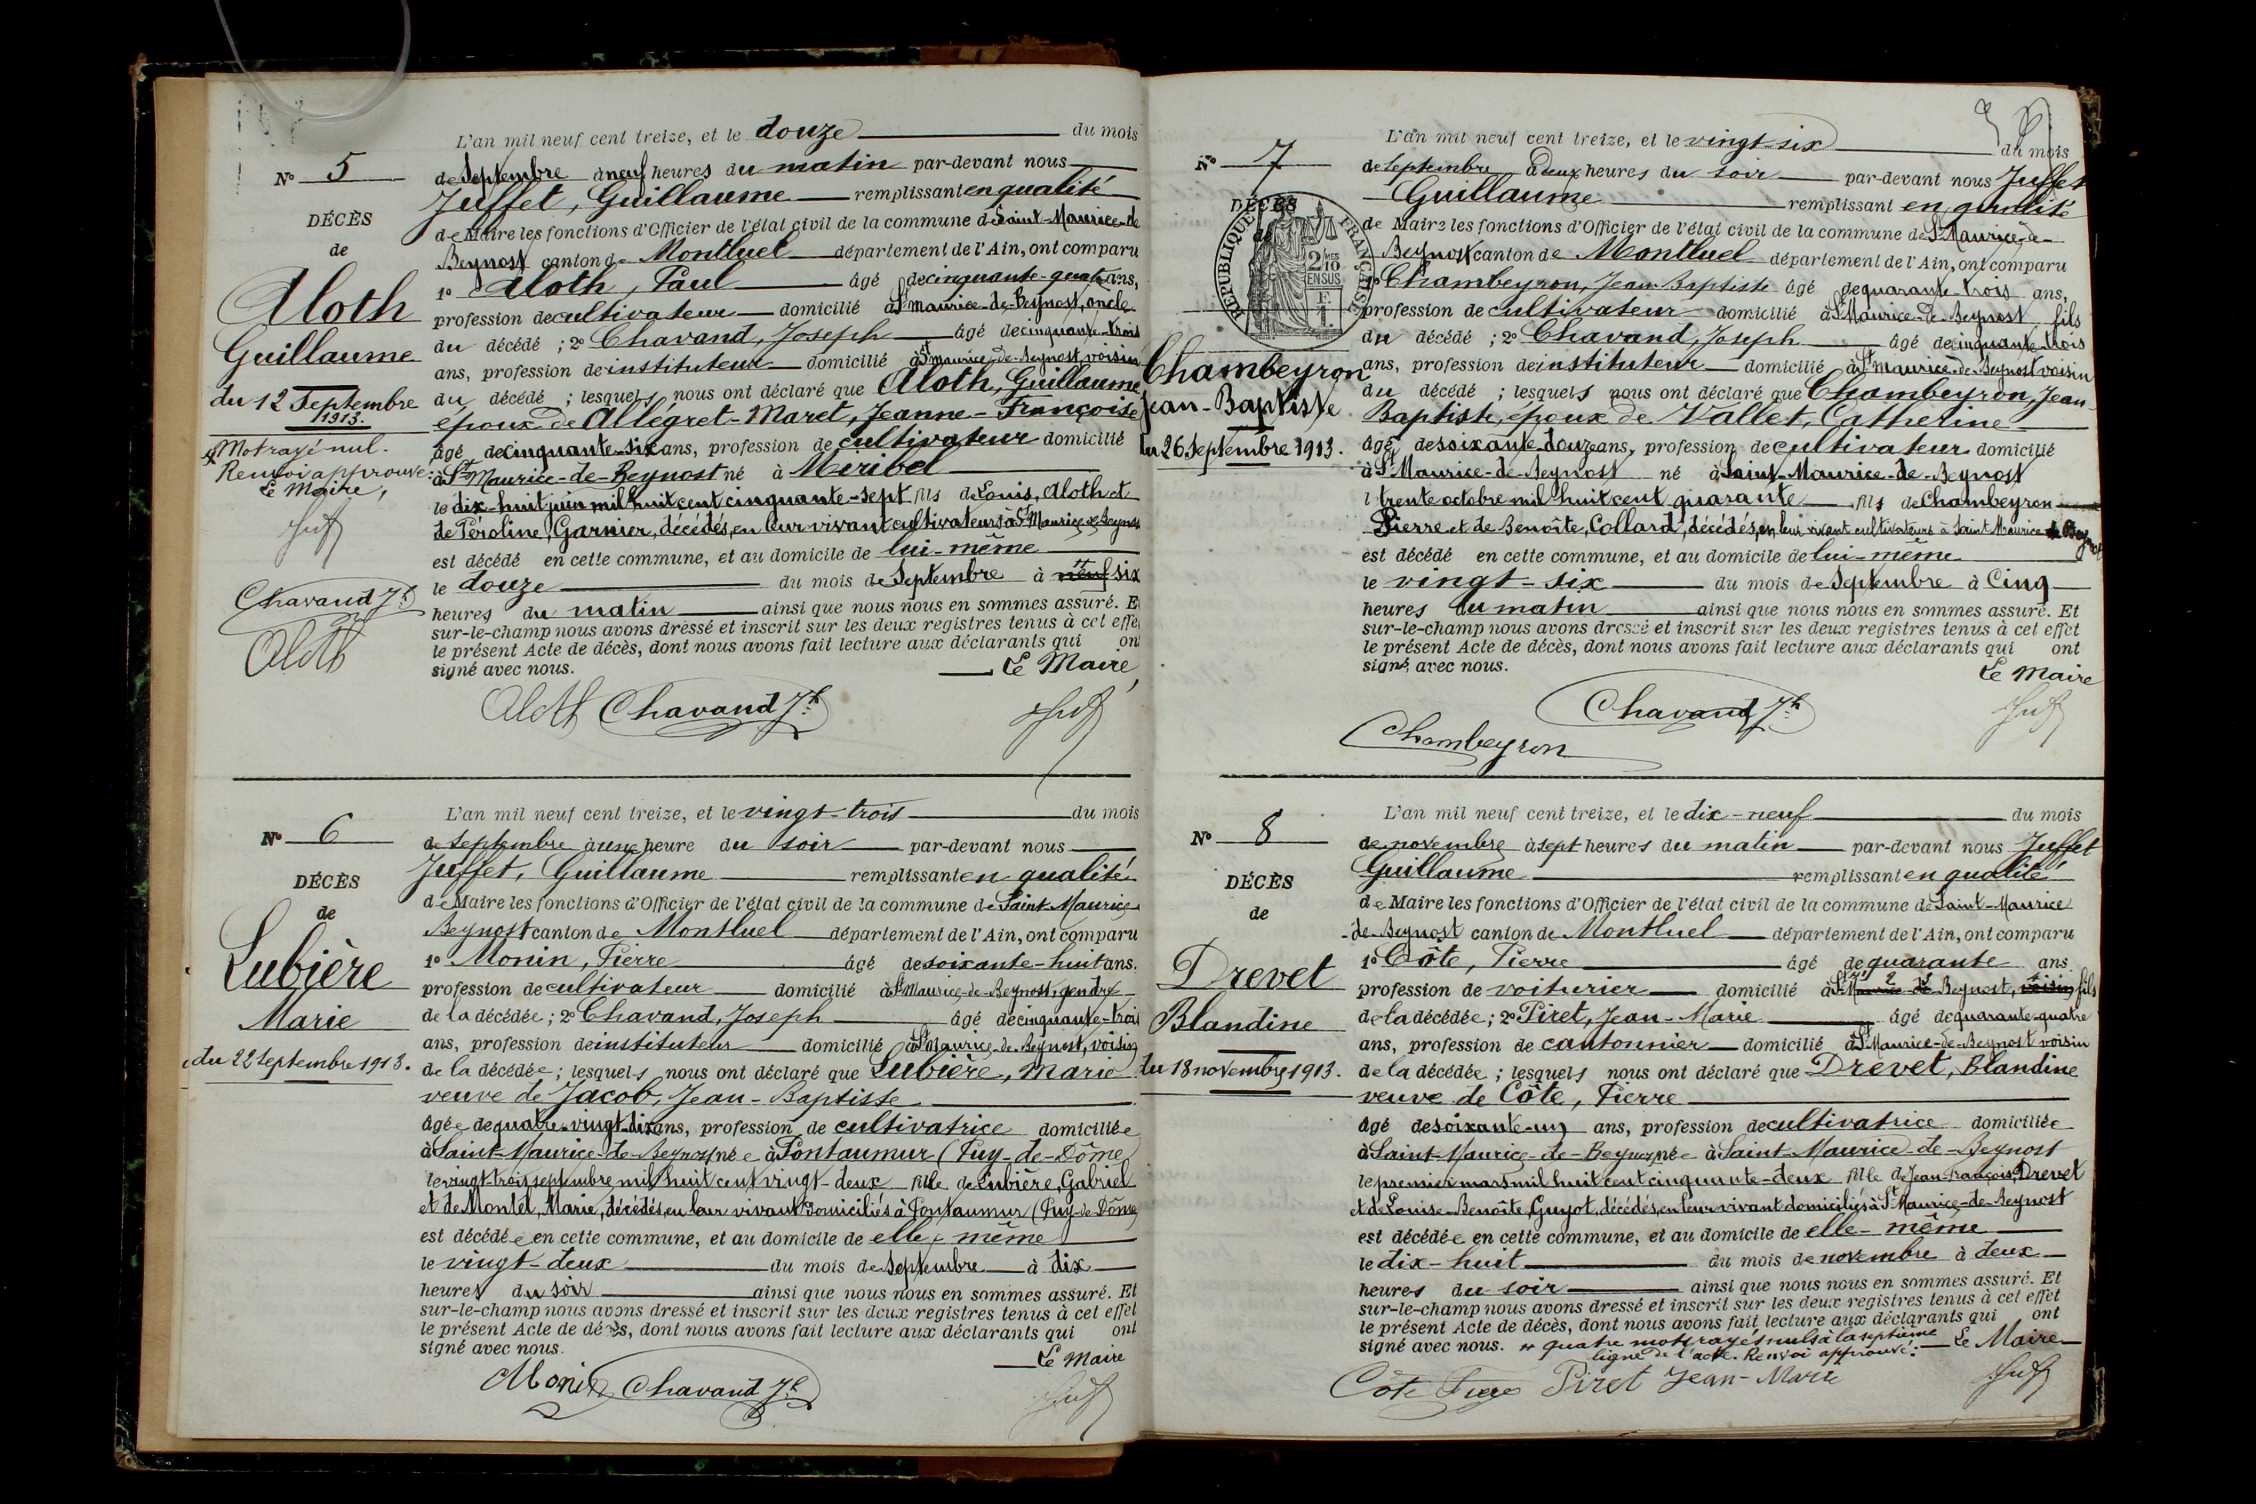 L'an mil neuf cent treize, et le douze du mois
N° 5
de Septembre à neuf heures du matin par-devant nous
Juffet, Guillaume remplissant en qualité
DÉCÈS
de Maire les fonctions d'Officier de l'état civil de la commune de Saint-Maurice-de
de
Beynost canton de Montluel département de l'Ain, ont comparu
Aloth
1° Aloth, Paul âgé de cinquante-quatre ans,
profession de cultivateur domicilié à St Maurice-de-Beynost, oncle
Guillaume
du décédé ; 2° Chavand, Joseph âgé de cinquante-trois
ans, profession de instituteur domicilié à St Maurice-de-Beynost, voisin
du 12 Septembre
1913.
du décédé ; lesquels nous ont déclaré que Aloth, Guillaume
époux de Allégret-Maret, Jeanne-Françoise
Mot rayé nul.
Renvoi approuvé :
Le Maire,
âgé de cinquante-six ans, profession de cultivateur domicilié
à St Maurice-de-Beynost né à Miribel
le dix-huit juin mil huit cent cinquante-sept fils de Louis, Aloth et
de Péroline, Garnier, décédés, en leur vivant cultivateurs à St Maurice de Beynost
est décédé en cette commune, et au domicile de lui-même
le douze du mois de Septembre à neuf six
heures du matin ainsi que nous nous en sommes assuré. E
sur-le-champ nous avons dressé et inscrit sur les deux registres tenus à cet effe
le présent Acte de décès, dont nous avons fait lecture aux déclarants qui on
signé avec nous. Le Maire,
Chavand Jh
Aloth
Aloth Chavand Jh Juf
L'an mil neuf cent treize, et le vingt-trois du mois
N° 6
de septembre à une heure du soir par-devant nous
Juffet, Guillaume remplissant en qualité
DÉCÈS
de Maire les fonctions d'Officier de l'état civil de la commune de Saint-Maurice
de
Beynost canton de Montluel département de l'Ain, ont comparu
Lubière
1° Monin, Pierre âgé de soixante-huit ans.
profession de cultivateur domicilié à St Maurice-de-Beynost, gendre
Marie
de la décédée ; 2° Chavand, Joseph âgé de cinquante-trois
ans, profession de instituteur domicilié à St Maurice-de-Beynost, voisin
du 22 Septembre 1913.
de la décédée ; lesquels nous ont déclaré que Lubière, Marie
veuve de Jacob, Jean-Baptiste
âgée de quatre-vingt-dix ans, profession de cultivatrice domiciliée
à Saint-Maurice-de-Beynost née à Pontaumur (Puy-de-Dôme
le vingt-trois septembre mil huit cent vingt-deux fille de Lubière, Gabriel
et de Montel, Marie, décédés, en leur vivant domiciliés à Pontaumur (Puy-de-Dôme)
est décédée en cette commune, et au domicile de elle-même
le vingt-deux du mois de septembre à dix
heures du soir ainsi que nous nous en sommes assuré. Et
sur-le-champ nous avons dressé et inscrit sur les deux registres tenus à cet effet
le présent Acte de décès, dont nous avons fait lecture aux déclarants qui ont
signé avec nous. Le Maire
Monin Chavand Jh Juf
L'an mil neuf cent treize, et le vingt-six du mois
N° 7
de septembre à deux heures du soir par-devant nous Juffet
Guillaume remplissant en qualité
DÉCÈS
RÉPUBLIQUE FRANÇAISE
2 MES 10 EN SUS
F 1
de Maire les fonctions d'Officier de l'état civil de la commune de St Maurice-de-
Beynost canton de Montluel département de l'Ain, ont comparu
1° Chambeyron, Jean Baptiste âgé de quarante-trois ans,
profession de cultivateur domicilié à St Maurice-de-Beynost fils
du décédé ; 2° Chavand, Joseph âgé de cinquante-trois
Chambeyron
ans, profession de instituteur domicilié à St Maurice-de-Beynost voisin
Jean-Baptiste
du décédé ; lesquels nous ont déclaré que Chambeyron, Jean-
Baptiste, époux de Vallet, Catherine
du 26 Septembre 1913.
âgé de soixante-douze ans, profession de cultivateur domicilié
à St Maurice-de-Beynost né à Saint-Maurice-de-Beynost
l trente octobre mil huit cent quarante fils de Chambeyron
Pierre et de Benoîte, Collard, décédés, en leur vivant cultivateurs à Saint Maurice de Beynost
est décédé en cette commune, et au domicile de lui-même
le vingt-six du mois de septembre à Cinq
heures du matin ainsi que nous nous en sommes assuré. Et
sur-le-champ nous avons dressé et inscrit sur les deux registres tenus à cet effet
le présent Acte de décès, dont nous avons fait lecture aux déclarants qui ont
signé avec nous. Le Maire
Chavand Jh Juf
Chambeyron
L'an mil neuf cent treize, et le dix-neuf du mois
N° 8
de novembre à sept heures du matin par-devant nous Juffet
Guillaume remplissant en qualité
DÉCÈS
de Maire les fonctions d'Officier de l'état civil de la commune de Saint-Maurice
de
-de-Beynost canton de Montluel département de l'Ain, ont comparu
Drevet
1° Côte, Pierre âgé de quarante ans
profession de voiturier domicilié à St Maurice-de Beynost, voisin fils
Blandine
de la décédée ; 2° Piret, Jean-Marie âgé de quarante-quatre
ans, profession de cantonnier domicilié à St Maurice-de-Beynost voisin
du 18 novembre 1913.
de la décédée ; lesquels nous ont déclaré que Drevet, Blandine
veuve de Côte, Pierre
âgé de soixante-un ans, profession de cultivatrice domiciliée
à Saint-Maurice-de-Beynost née à Saint-Maurice-de-Beynost
le premier mars mil huit cent cinquante-deux fille de Jean-François, Drevet
et de Louise-Benoîte, Guyot, décédés, en leur vivant domiciliés à St Maurice-de-Beynost
est décédée en cette commune, et au domicile de elle-même
le dix-huit du mois de novembre à deux
heures du soir ainsi que nous nous en sommes assuré. Et
sur-le-champ nous avons dressé et inscrit sur les deux registres tenus à cet effet
le présent Acte de décès, dont nous avons fait lecture aux déclarants qui ont
signé avec nous. quatre mots rayés nuls à la septième Le Maire
ligne de l'acte. Renvoi approuvé.
Côte Pierre Piret Jean-Marie Juf